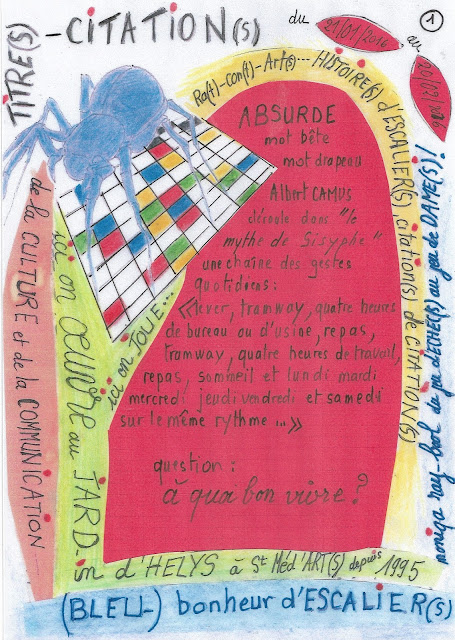 TITRE(S)-CITATION(S)
du 21/01/2016 au
1
Ra(t)-con(t)-Art(s)... HISTOIRE(s) d'ESCALIER(s) citation(s) de CITATION(s)
ABSURDE
mot bête
mot drapeau
Albert CAMUS
découle dans "le
mythe de Sisyphe"
une chaîne des gestes
quotidiens :
« lever, tramway, quatre heures
de bureau ou d'usine, repas,
tramway, quatre heures de travail,
repas, sommeil et lundi mardi
mercredi jeudi vendredi et samedi
sur le même rythme ... »
question :
à quoi bon vivre ?
de la CULTURE et de la COMMUNICATION ...
ici on OEUVRE au JARD-
in d'HELYS à St Méd'ART(S) depuis 1995
ici on JOUE ...
moniqa ray-bool du jeu d'ECHE(S) au jeu de DAME(S) !
(BLEU-) bonheur d'ESCALIER(S)